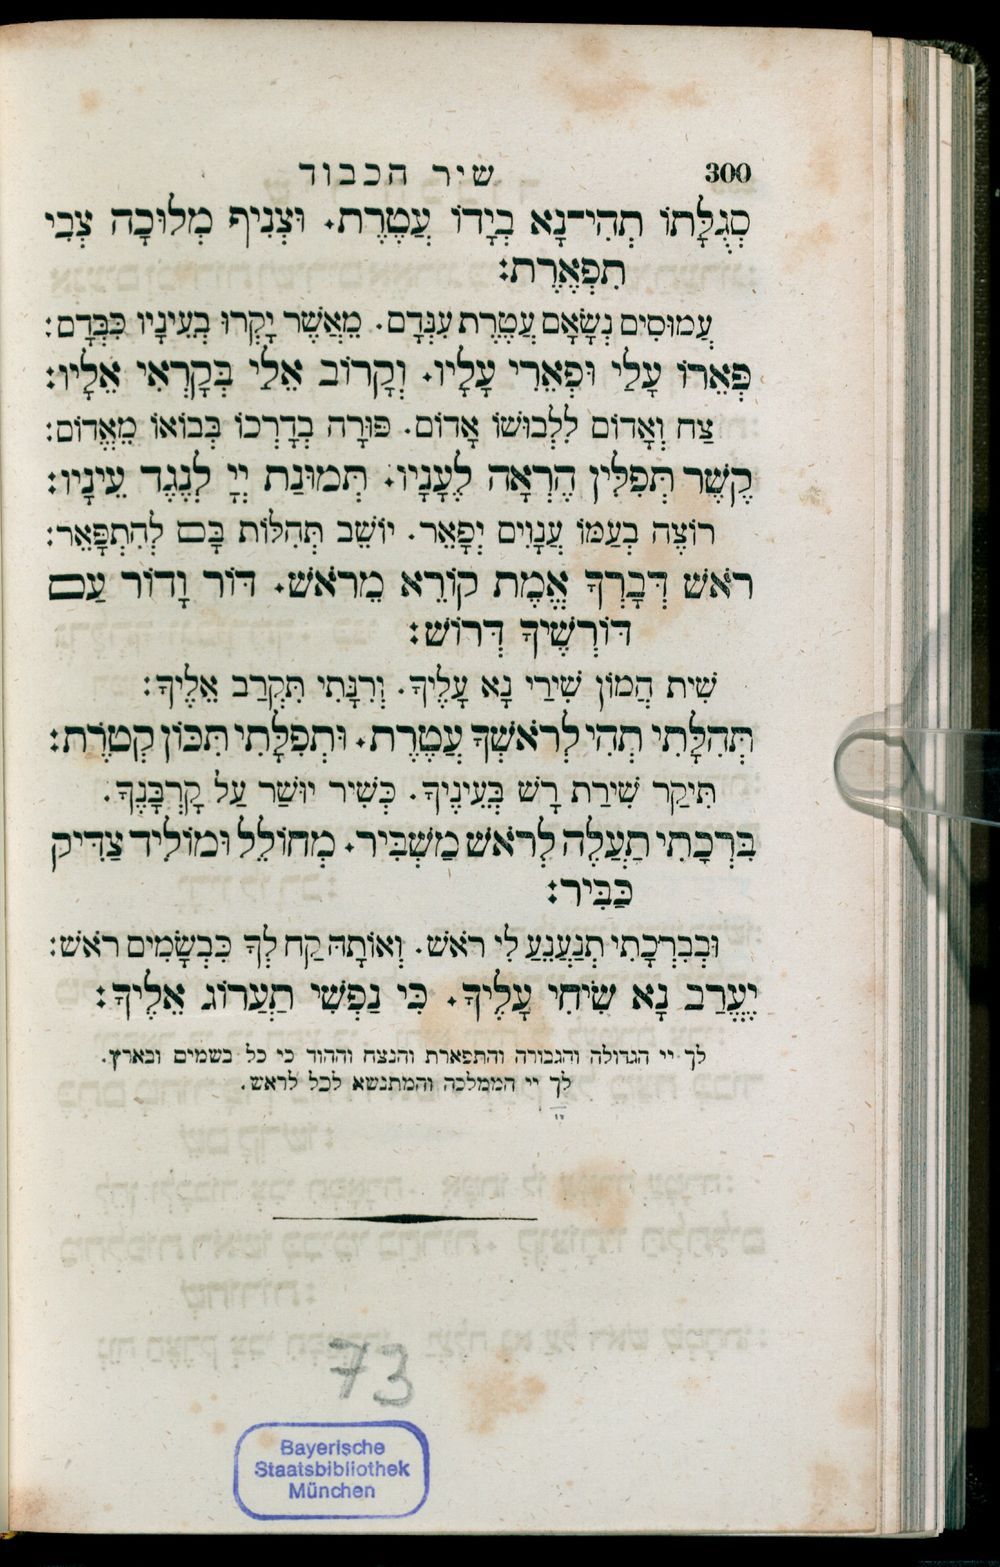 שיר הכבוד 300
סְגֻלָּתוֹ תְּהִי־נָא בְיָדוֹ עֲטֶרֶת. וּצְנִיף מְלוּכָה צְבִי
תִפְאֶרֶת:
עֲמוּסִים נְשָׂאָם עֲטֶרֶת עִנְּדָם. מֵאֲשֶׁר יָקְרוּ בְעֵינָיו כִּבְּדָם:
פְּאֵרוֹ עָלַי וּפְאֵרִי עָלָיו. וְקָרוֹב אֵלַי בְּקָרְאִי אֵלָיו:
צַח וְאָדוֹם לִלְבוּשׁוֹ אָדוֹם. פּוּרָה בְדָרְכוֹ בְּבוֹאוֹ מֵאֱדוֹם:
קֶשֶׁר תְּפִלִּין הֶרְאָה לֶעָנָיו. תְּמוּנַת יְיָ לְנֶגֶד עֵינָיו:
רוֹצֶה בְעַמּוֹ עֲנָוִים יְפָאֵר. יוֹשֵׁב תְּהִלּוֹת בָּם לְהִתְפָּאֵר:
רֹאשׁ דְּבָרְךָ אֱמֶת קוֹרֵא מֵרֹאשׁ. דּוֹר וָדוֹר עַם
דּוֹרֶשְׁיךָ דְּרוֹשׁ:
שִׁית הֲמוֹן שִׁירַי נָא עָלֶיךָ. וְרִנָּתִי תִּקְרַב אֵלֶיךָ:
תְּהִלָּתִי תְהִי לְרֹאשְׁךָ עֲטֶרֶת. וּתְפִלָּתִי תִּכּוֹן קְטֹרֶת:
תִּיקַר שִׁירַת רָשׁ בְּעֵינֶיךָ. כְּשִׁיר יוּשַׁר עַל קָרְבָּנֶךָ.
בִּרְכָתִי תַעֲלֶה לְרֹאשׁ מַשְׁבִּיר. מְחוֹלֵל וּמוֹלִיד צַדִּיק
כַּבִּיר:
וּבְבִרְכָתִי תְנַעֲנַע לִי רֹאשׁ. וְאוֹתָהּ קַח לְךָ כִּבְשָׂמִים רֹאשׁ:
יֶעֱרַב נָא שִׂיחִי עָלֶיךָ. כִּי נַפְשִׁי תַעֲרוֹג אֵלֶיךָ:
לך יי הגדולה והגבורה והתפארת והנצח וההוד כי כל בשמים ובארץ.
לך יי הממלכה והמתנשא לכל לראש.
73
Bayerische
Staatsbibliothek
München